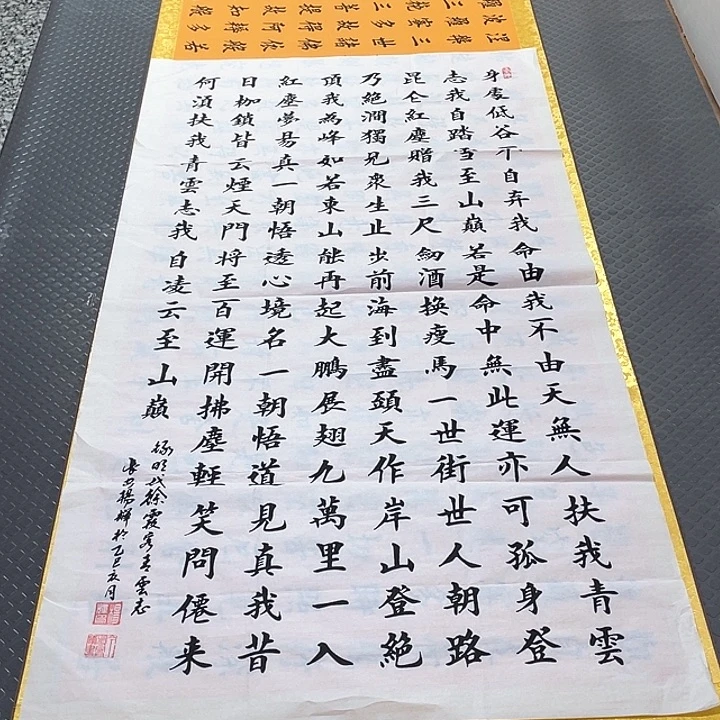 身處低谷不自弃我命由我不由天無人扶我青雲
志我自踏雪至山巔若是命中無此運亦可孤身登
昆仑紅塵贈我三尺劍酒換瘦馬一世街世人朝路
乃絕澗獨見眾生止步前海到盡頭天作岸山登絕
頂我為峰如若東山能再起大鵬展翅九萬里一入
紅塵夢易真一朝悟透心境名一朝悟道見真我昔
日枷鎖皆云煙天門將至百運開拂塵輕笑問僊来
何須扶我青雲志我自凌云至山巔
録明代餘霞客青雲志
長安楊輝於乙巳夏月